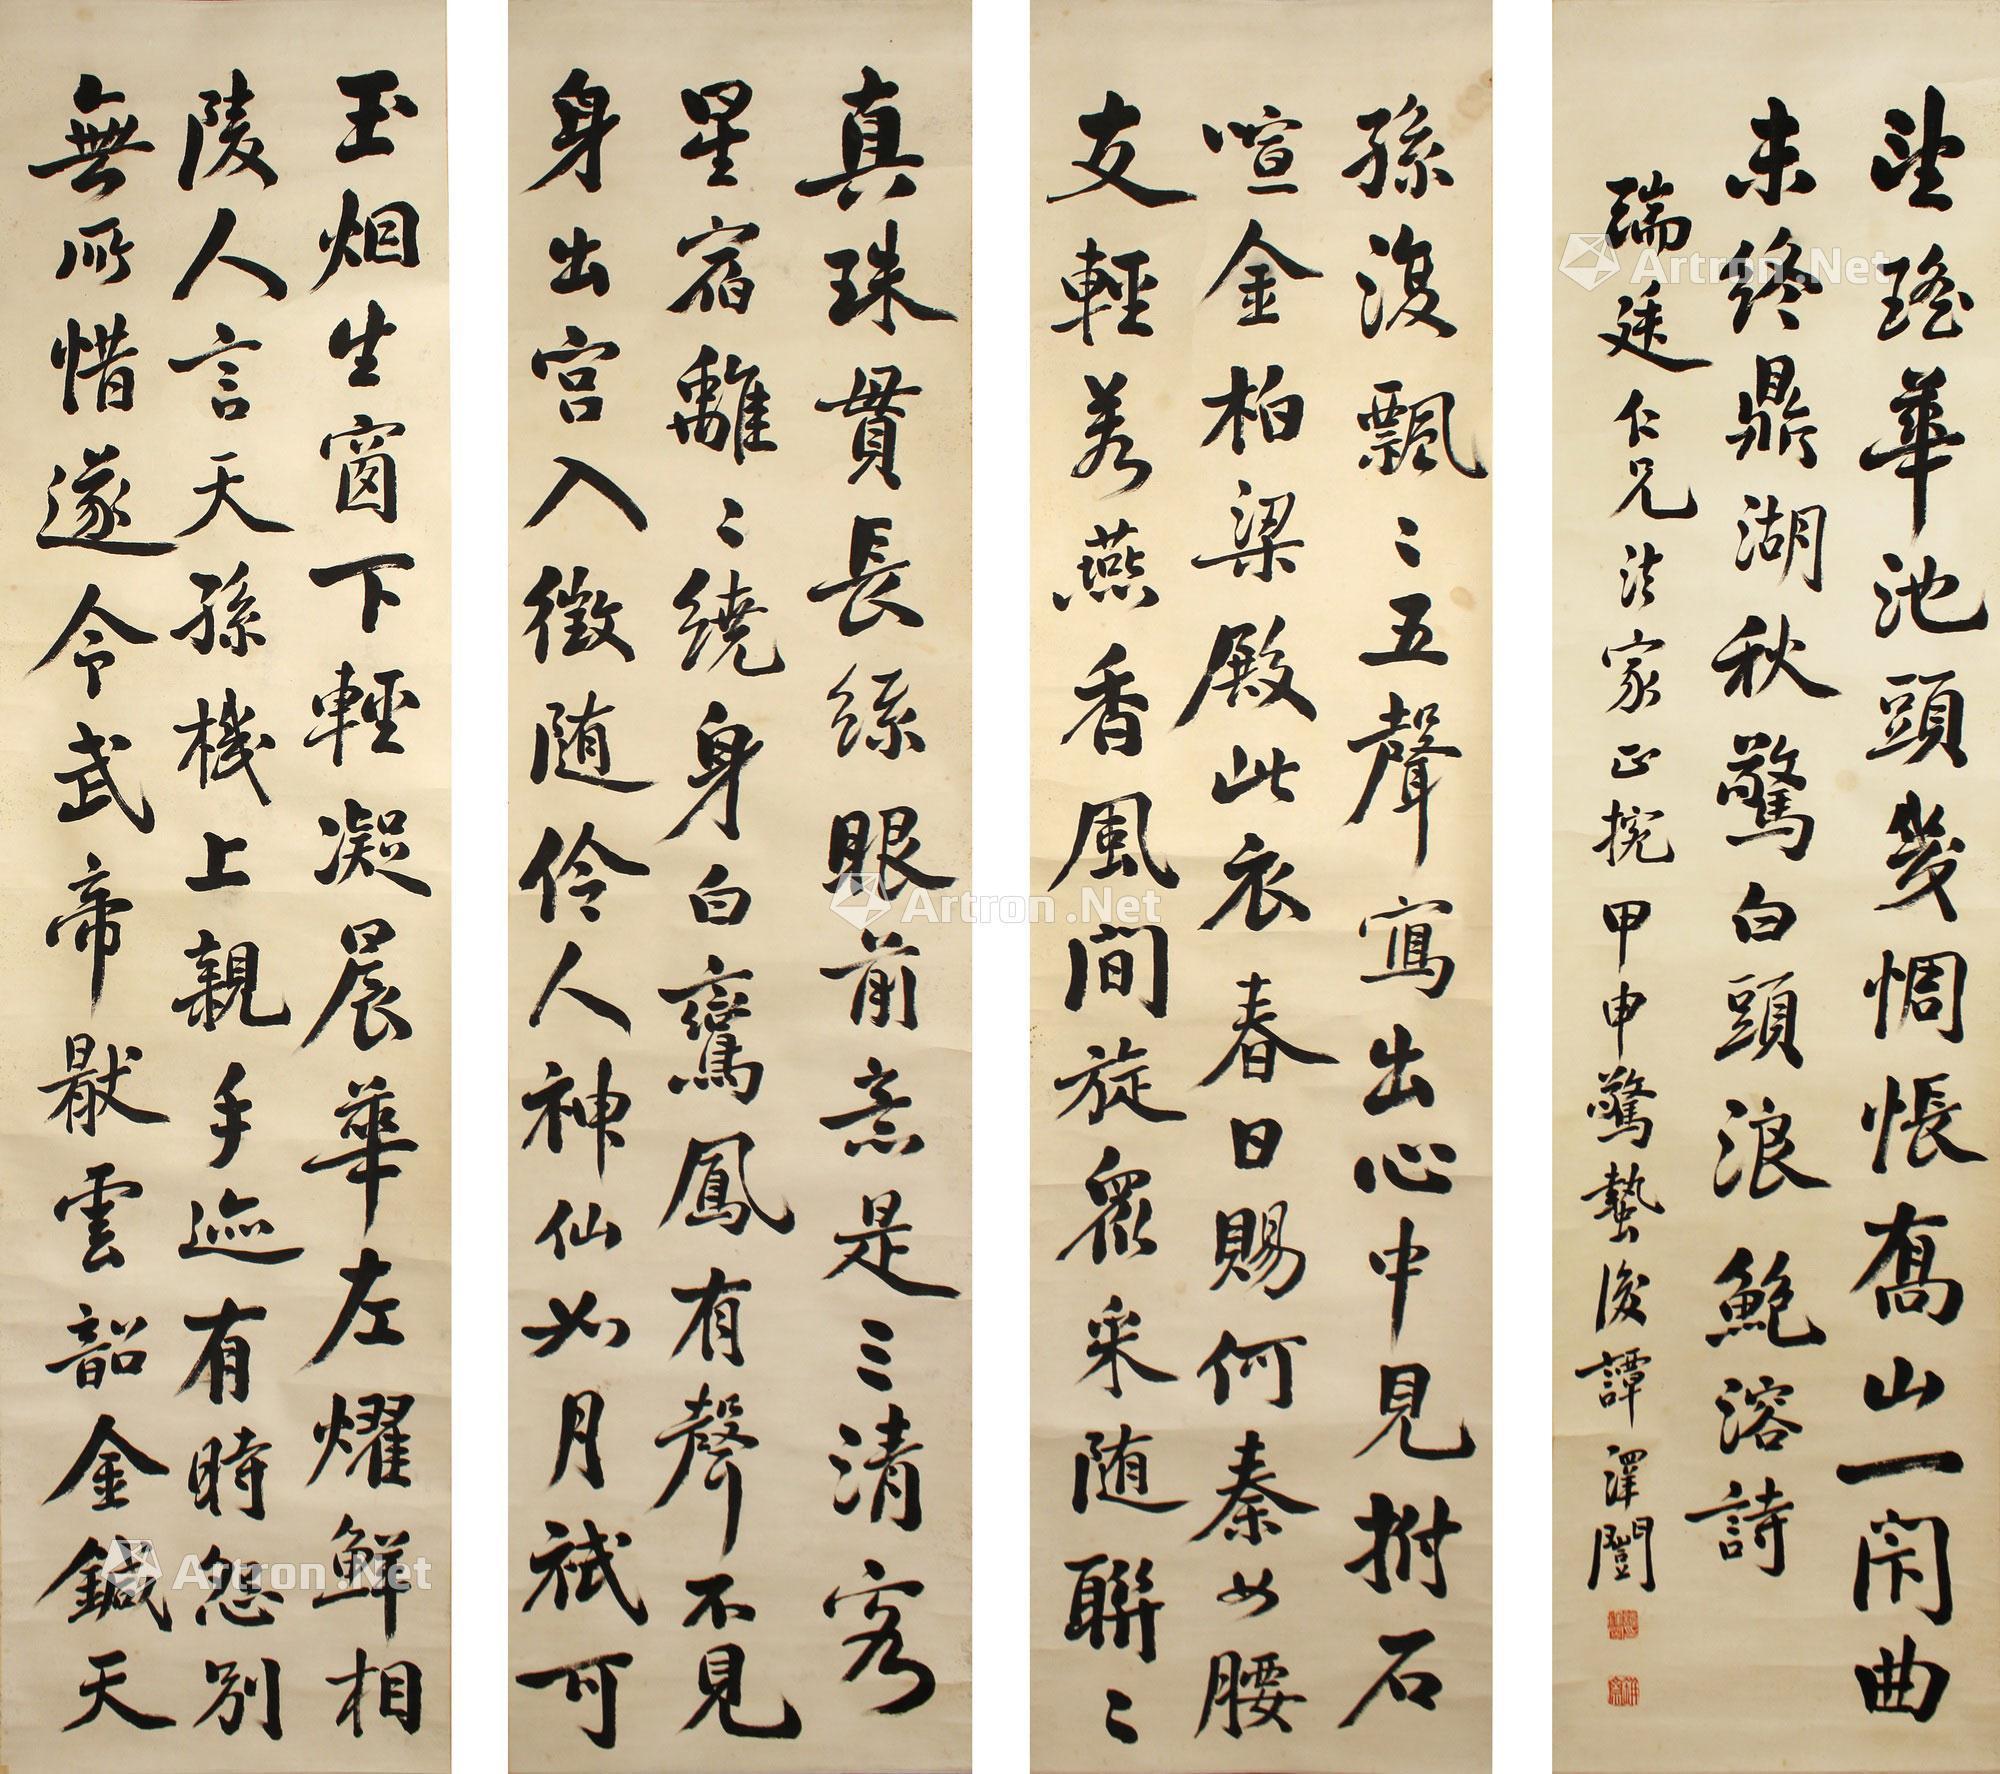 玉烟生窗下輕凝晨華左耀鮮相
陵人言天孫機上親手迹有時怨別
無所惜遂令武帝猒雲韶金鍼天
孫復飄〻五聲寫出心中見拊石
喧金柏梁殿此衣春日賜何秦女腰
支輕若燕香風間旋衆采随聯〻
真珠貫長絲眼前意是三清客
星宿離〻繞身白鸞鳳有聲不見
身出宮入徵随伶人神仙如月祇可
望瑤華池頭幾惆悵喬山一閇曲
未終鼎湖秋驚白頭浪鮑溶詩
瑞廷仁兄法家正捥甲申驚蟄後譚澤闓
Artron.Net
Artron.Net
Artron.Net